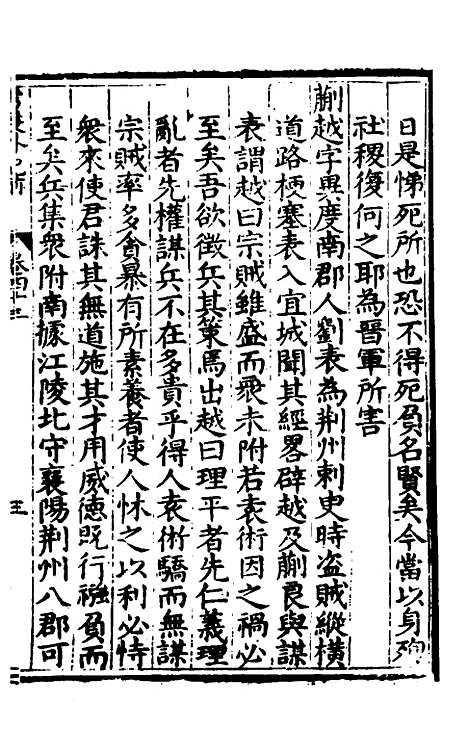 日是悌死所也恐不得死負名賢矣今當以身殉
社稷復何之耶為晉軍所害
蒯越字異度南郡人劉表為荆州刺史時盗賊縱横
道路梗塞表入宜城聞其經畧辟越及蒯良與謀
表謂越曰宗賊雖盛而衆未附若袁術因之禍必
至矣吾欲徴兵其策焉出越曰理平者先仁義理
亂者先權謀兵不在多貴乎得人袁術驕而無謀
宗賊率多貪暴有所素養者使人怵之以利必恃
衆來使君誅其無道施其才用威徳既行襁負而
至矣兵集衆附南據江陵北守襄陽荆州八郡可
卷四十三